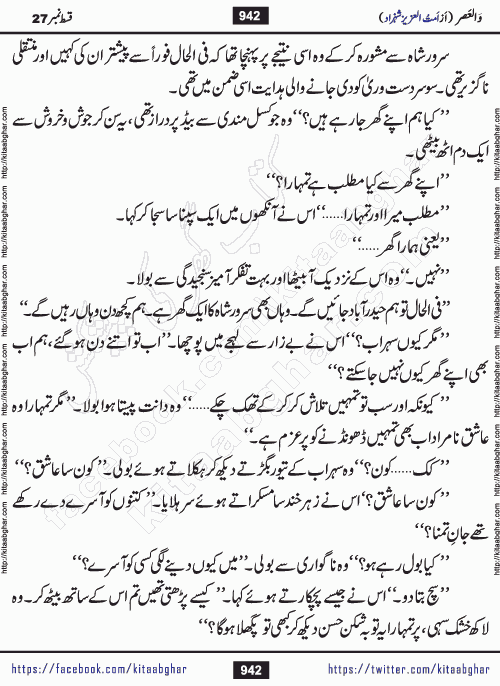 وَالعَصر (از اَمتُ العزیز شہزاد) 942 قسط نمبر 27
سرور شاہ سے مشورہ کر کے وہ اسی نتیجے پر پہنچا تھا کہ فی الحال فوراً سے پیشتر ان کی کہیں اور منتقلی
ناگزیر تھی۔ سو سردست وریٰ کو دی جانے والی ہدایت اسی ضمن میں تھی۔
’’کیا ہم اپنے گھر جا رہے ہیں؟‘‘ وہ جو کسل مندی سے بیڈ پر دراز تھی، یہ سن کر جوش و خروش سے
ایک دم اٹھ بیٹھی۔
’’اپنے گھر سے کیا مطلب ہے تمہارا؟‘‘
’’مطلب میرا اور تمہارا......‘‘ اس نے آنکھوں میں ایک سپنا سا سجا کر کہا۔
’’یعنی ہمارا گھر......‘‘
’’نہیں۔‘‘ وہ اس کے نزدیک آ بیٹھا اور بہت تفکر آمیز سنجیدگی سے بولا۔
’’فی الحال تو ہم حیدر آباد جائیں گے۔ وہاں بھی سرور شاہ کا ایک گھر ہے۔ ہم کچھ دن وہاں رہیں گے۔‘‘
’’مگر کیوں سہراب؟‘‘ اس نے بے زار سے لہجے میں پوچھا۔ ’’اب تو اتنے دن ہو گئے، ہم اب
بھی اپنے گھر کیوں نہیں جا سکتے؟‘‘
’’کیونکہ اور سب تو تمہیں تلاش کر کر کے تھک چکے......‘‘ وہ دانت پیستا ہوا بولا۔ ’’مگر تمہارا وہ
عاشق نامراد اب بھی تمہیں ڈھونڈنے کو پرعزم ہے۔‘‘
’’کک......کون؟‘‘ وہ سہراب کے تیور بگڑتے دیکھ کر ہکلاتے ہوئے بولی۔ ’’کون سا عاشق؟‘‘
’’کون سا عاشق؟‘‘ اس نے زہر خند سا مسکراتے ہوئے سر ہلایا۔ ’’کتنوں کو آسرے دے رکھے
تھے جانِ تمنا؟‘‘
’’کیا بول رہے ہو؟‘‘ وہ ناگواری سے بولی۔ ’’میں کیوں دینے لگی کسی کو آسرے؟‘‘
’’سچ بتا دو۔‘‘ اس نے جیسے پچکارتے ہوئے کہا۔ ’’کیسے پڑھتی تھیں تم اس کے ساتھ بیٹھ کر۔ وہ
لاکھ خشک سہی، پر تمہارا یہ توبہ شکن حسن دیکھ کر کبھی تو پگھلا ہوگا؟‘‘
https://facebook.com/kitaabghar 942 https://twitter.com/kitaabghar
http://kitaabghar.com http://kitaabghar.com http://kitaabghar.com http://kitaabghar.com http://kitaabghar.com http://kitaabghar.com
http://kitaabghar.com http://kitaabghar.com http://kitaabghar.com http://kitaabghar.com http://kitaabghar.com http://kitaabghar.com
facebook.com/kitaabghar
kitaabghar.com